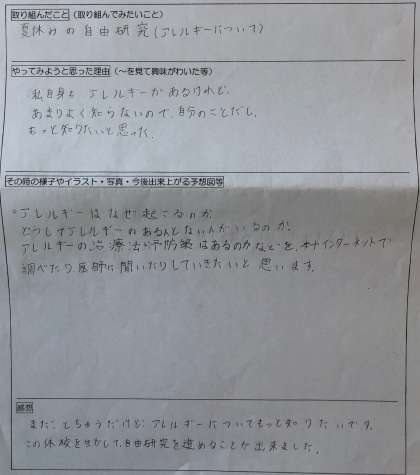 取り組んだこと（取り組んでみたいこと）
夏休みの自由研究(アレルギーについて)
やってみようと思った理由（～を見て興味がわいた等）
私自身も アレルギーがあるけれど、
あまりよく知らないので、自分のことだし、
もっと知りたいと思った。
その時の様子やイラスト・写真・今後出来上がる予想図等
・アレルギーはなぜ起こるのか。
どうしてアレルギーのある人とない人がいるのか。
アレルギーの治療法や予防策はあるのかなどを、本やインターネットで
調べたり、医師に聞いたりしていきたいと思います。
感想
まだ、とちゅうだけど、アレルギーについてもっと知りたいです。
この休校を生かして、自由研究を進めることが出来ました。